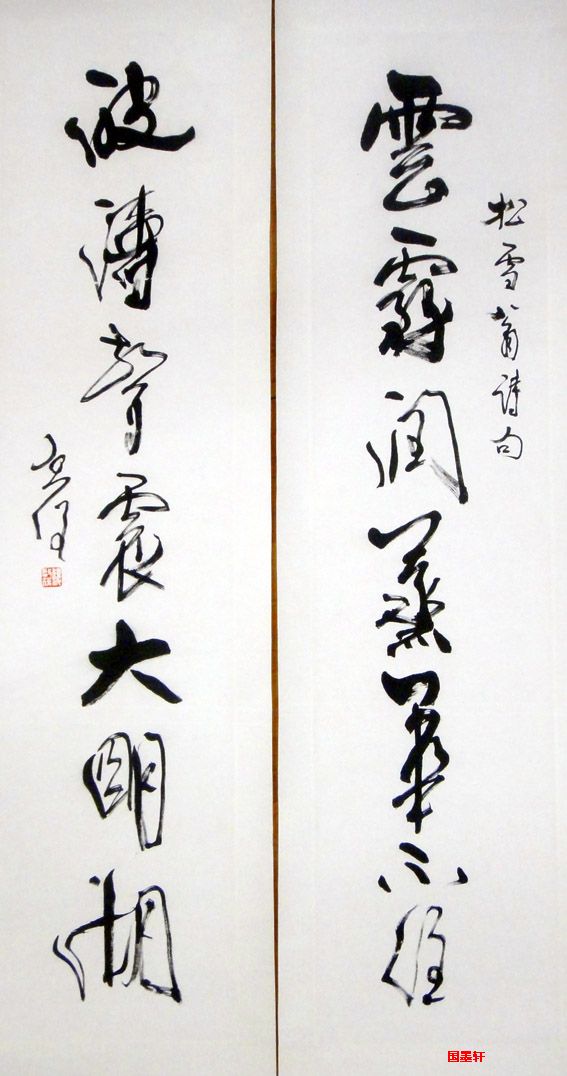 松雪翁詩句
雲霧潤蒸華不注
波濤聲震大明湖
国墨轩